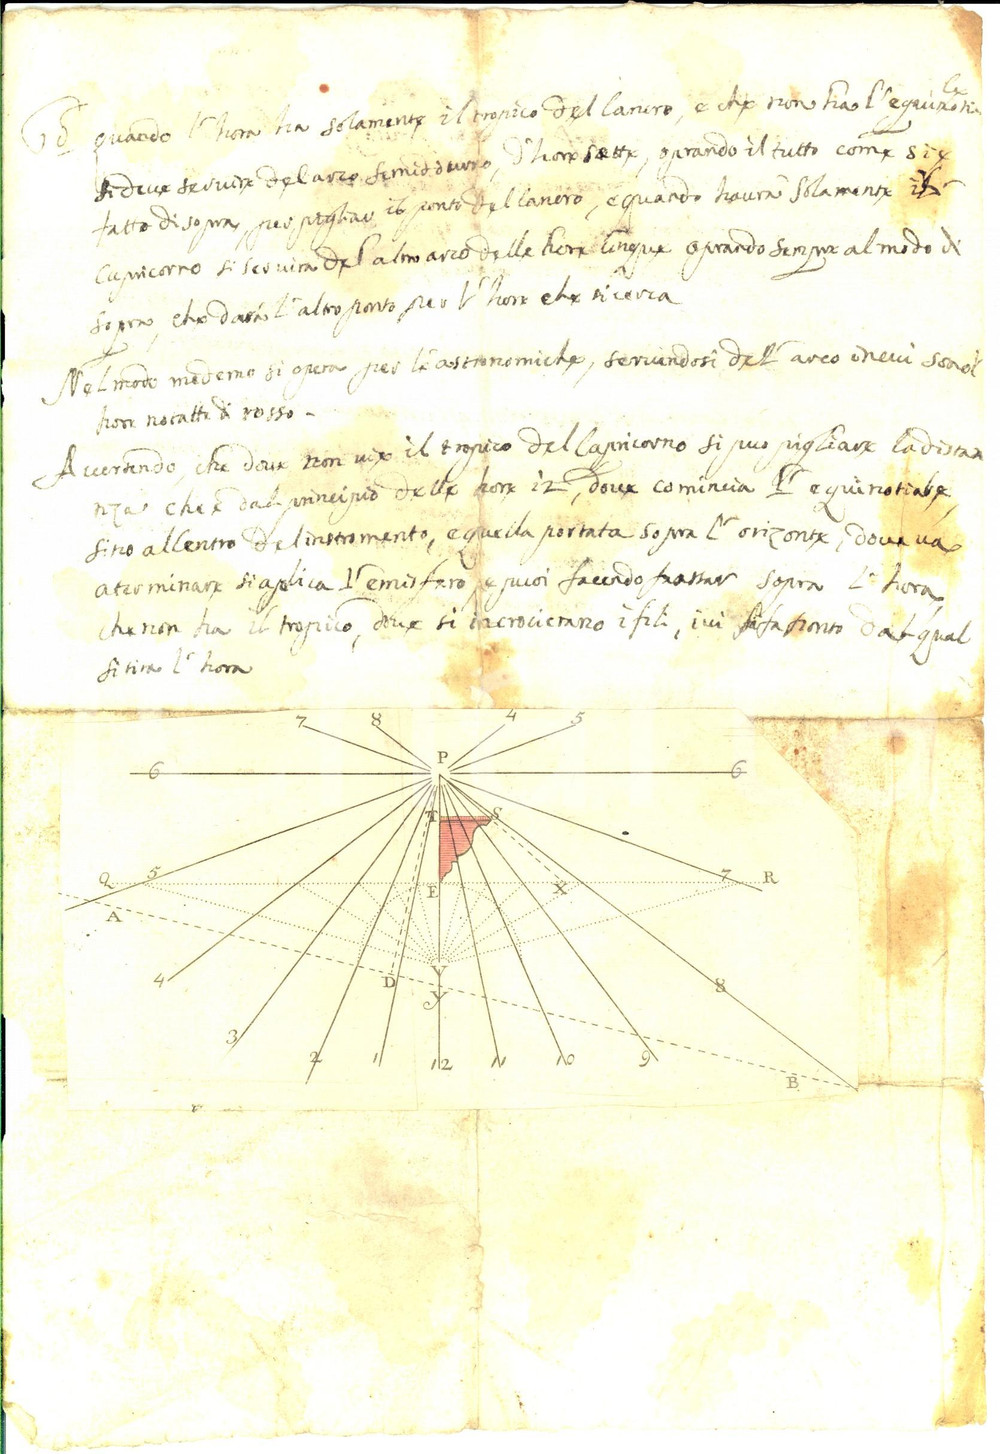 quando l'hora ha solamente il tropico del Cancro, e che non ha l'equinotia
le
si deve servire del arco semidiurno, d'hore sette, oprando il tutto come si e
fatto di sopra, per pigliar il ponto del Cancro, e quando haura solamente il
Capricorno si servira del altro arco delle hore cinque oprando sempre al modo di
sopra, che dará l'altro ponto per l'hore che si cerca
Nel modo medemo si opera per le astronomiche, servendosi del arco ove vi sono l
hore nottate di rosso -
Avertendo, che dove non vie il tropico del Capricorno si puo pigliare la dista
nza che è dal principio delle hore 12, dove comincia l'equinotiale,
sino al Centro del instromento, e quella portata sopra l'orizonte, dove va
a terminare si aplica l'emisfero, e puoi facendo passar sopra l'hora,
che non ha il tropico, dove si incrocierano i fili, ivi si fa ponto dal qual
si tira l'hora
7 8 4 5
P
6 6
T S
Q 5 E X 7 R
A
4 D V 8
y
3 2 1 12 11 10 9
B